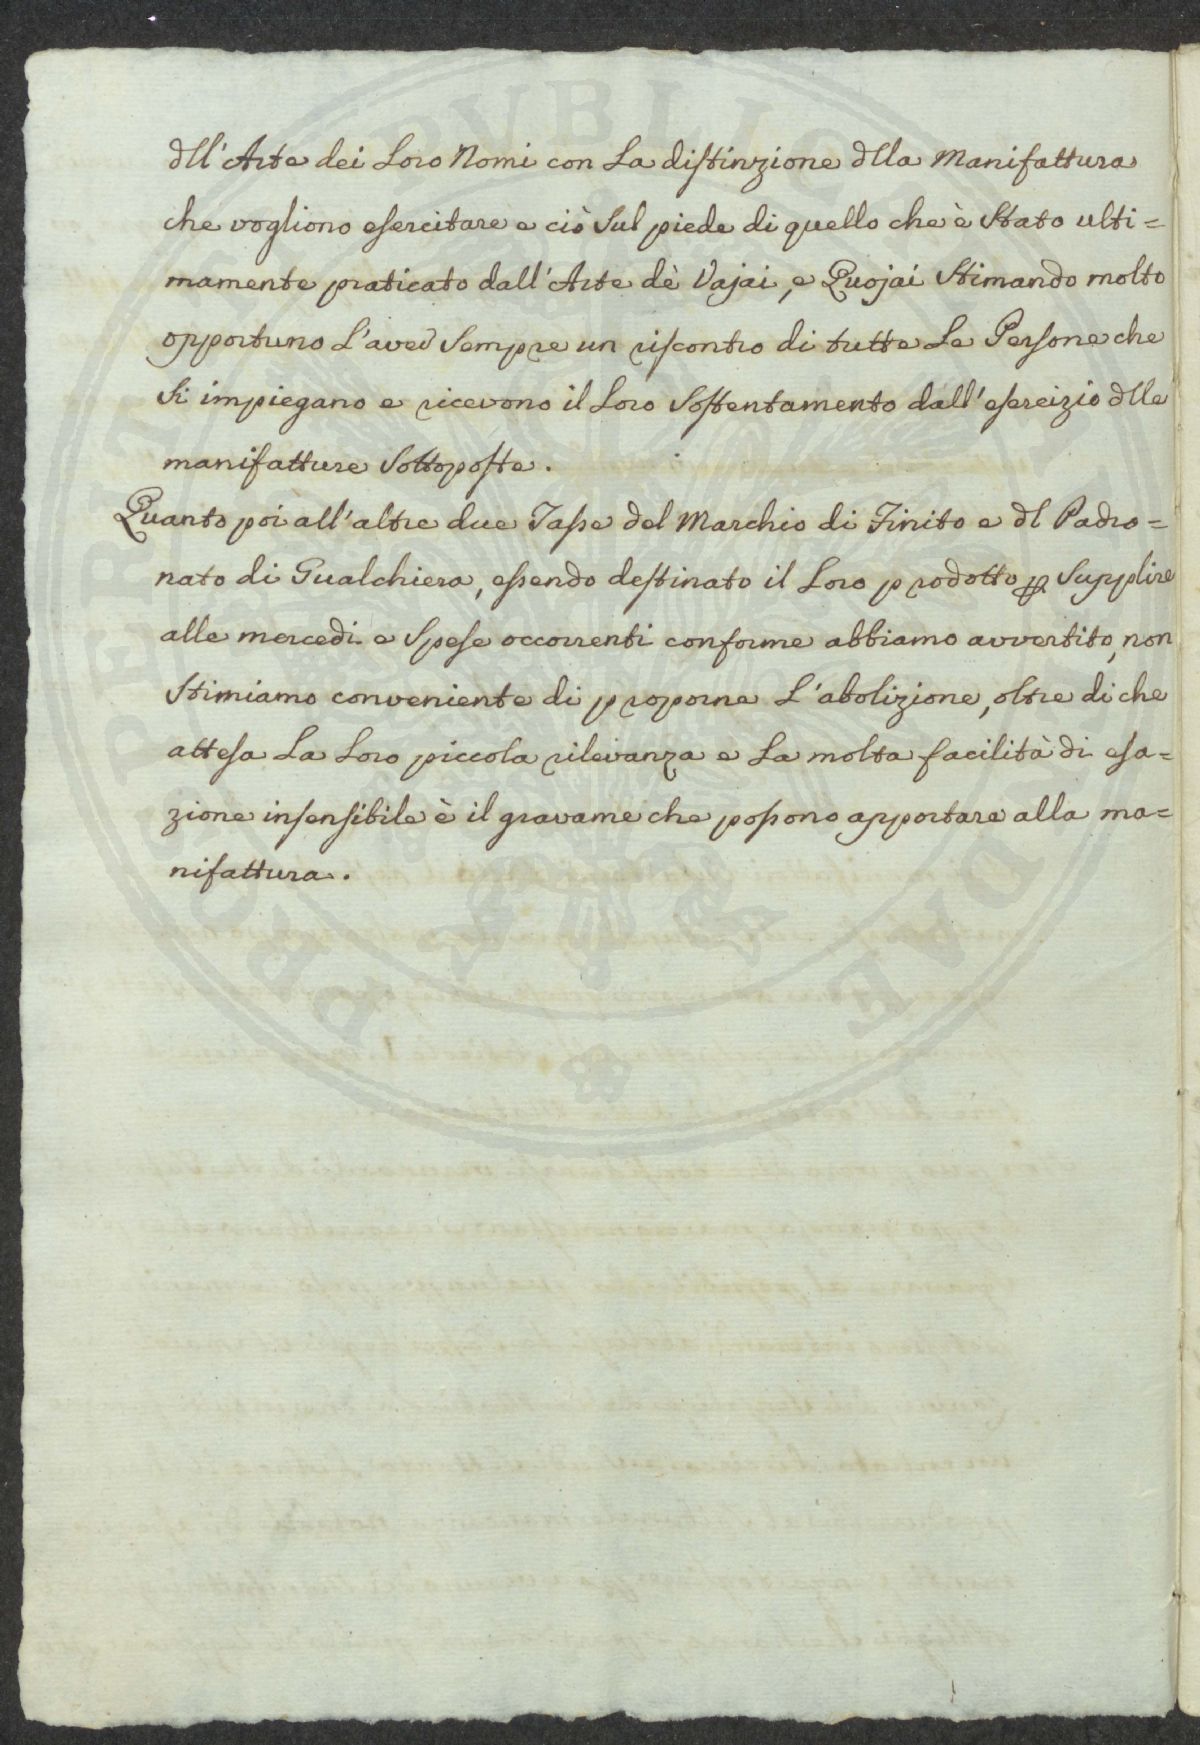 dll'Arte dei Loro Nomi con La distinzione dlla Manifattura
che vogliono esercitare e ciò Sul piede di quello che è Stato ulti=
mamente praticato dall'Arte dè Vajai, e Quojai Stimando molto
opportuno L'aver Sempre un riscontro di tutte Le Persone che
Si impiegano e ricevono il Loro Sostentamento dall'esercizio dlle
manifatture Sottoposte.
Quanto poi all'altre due Tasse del Marchio di Finito e dl Padro=
nato di Gualchiera, essendo destinato il Loro prodotto p Supplire
alle mercedi e Spese occorrenti conforme abbiamo avvertito, non
Stimiamo conveniente di proporne L'abolizione, oltre di che
attesa La Loro piccola rilevanza e La molta facilità di esa=
zione insensibile è il gravame che possono apportare alla ma=
nifattura.